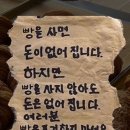 빵을 사면
돈이 없어 집니다.
하지만
빵을 사지 않아도
돈은 없어 집니다.
여러분